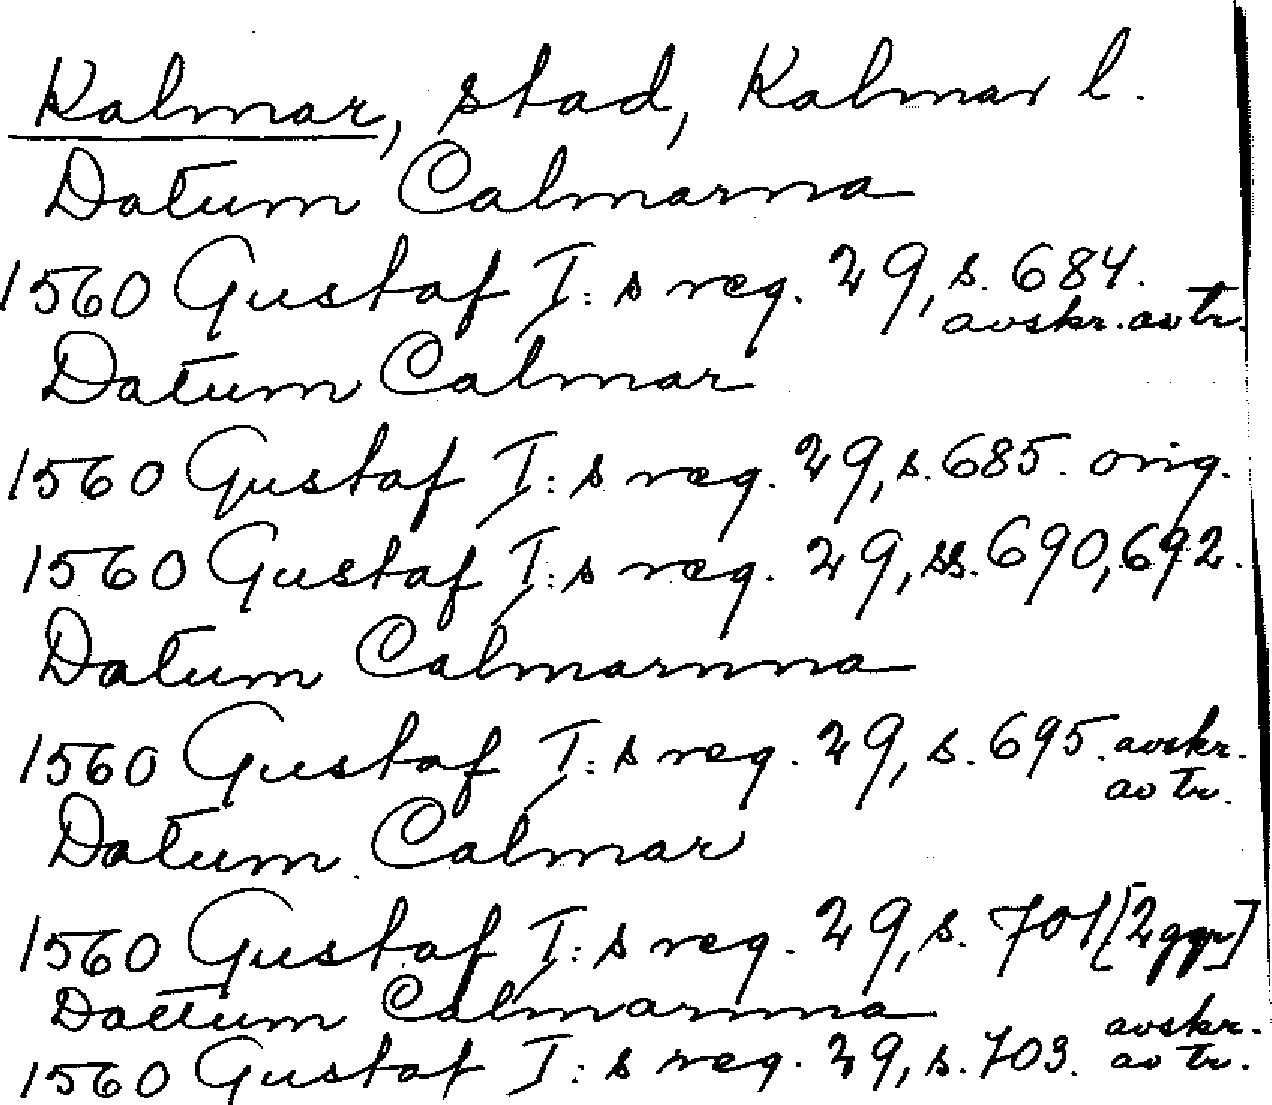 Kalmar, stad, Kalmar l.
Datum Calmarna
1560 Gustaf I:s reg. 29, s. 684.
avskr. av tr.
Datum Calmar
1560 Gustaf I:s reg. 29, s. 685. orig.
1560 Gustaf I:s reg. 29, ss. 690, 692.
Datum Calmarnna
1560 Gustaf I:s reg. 29, s. 695. avskr.
av tr.
Datum Calmar
1560 Gustaf I:s reg. 29, s. 701 [2 ggr]
Dattum Calmarnna
avskr.
1560 Gustaf I:s reg. 29, s. 703. av tr.